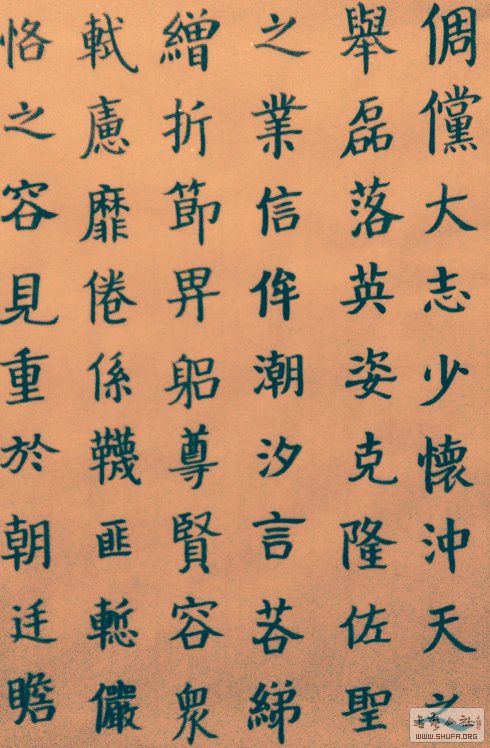 倜儻大志少懷沖天之
舉磊落英姿克隆佐聖
之業信侔潮汐言荅綈
繒折節畀躳尊賢容衆
軾慮靡倦係韈匪慙儼
恪之容見重於朝廷瞻
WWW.SHUFA.ORG